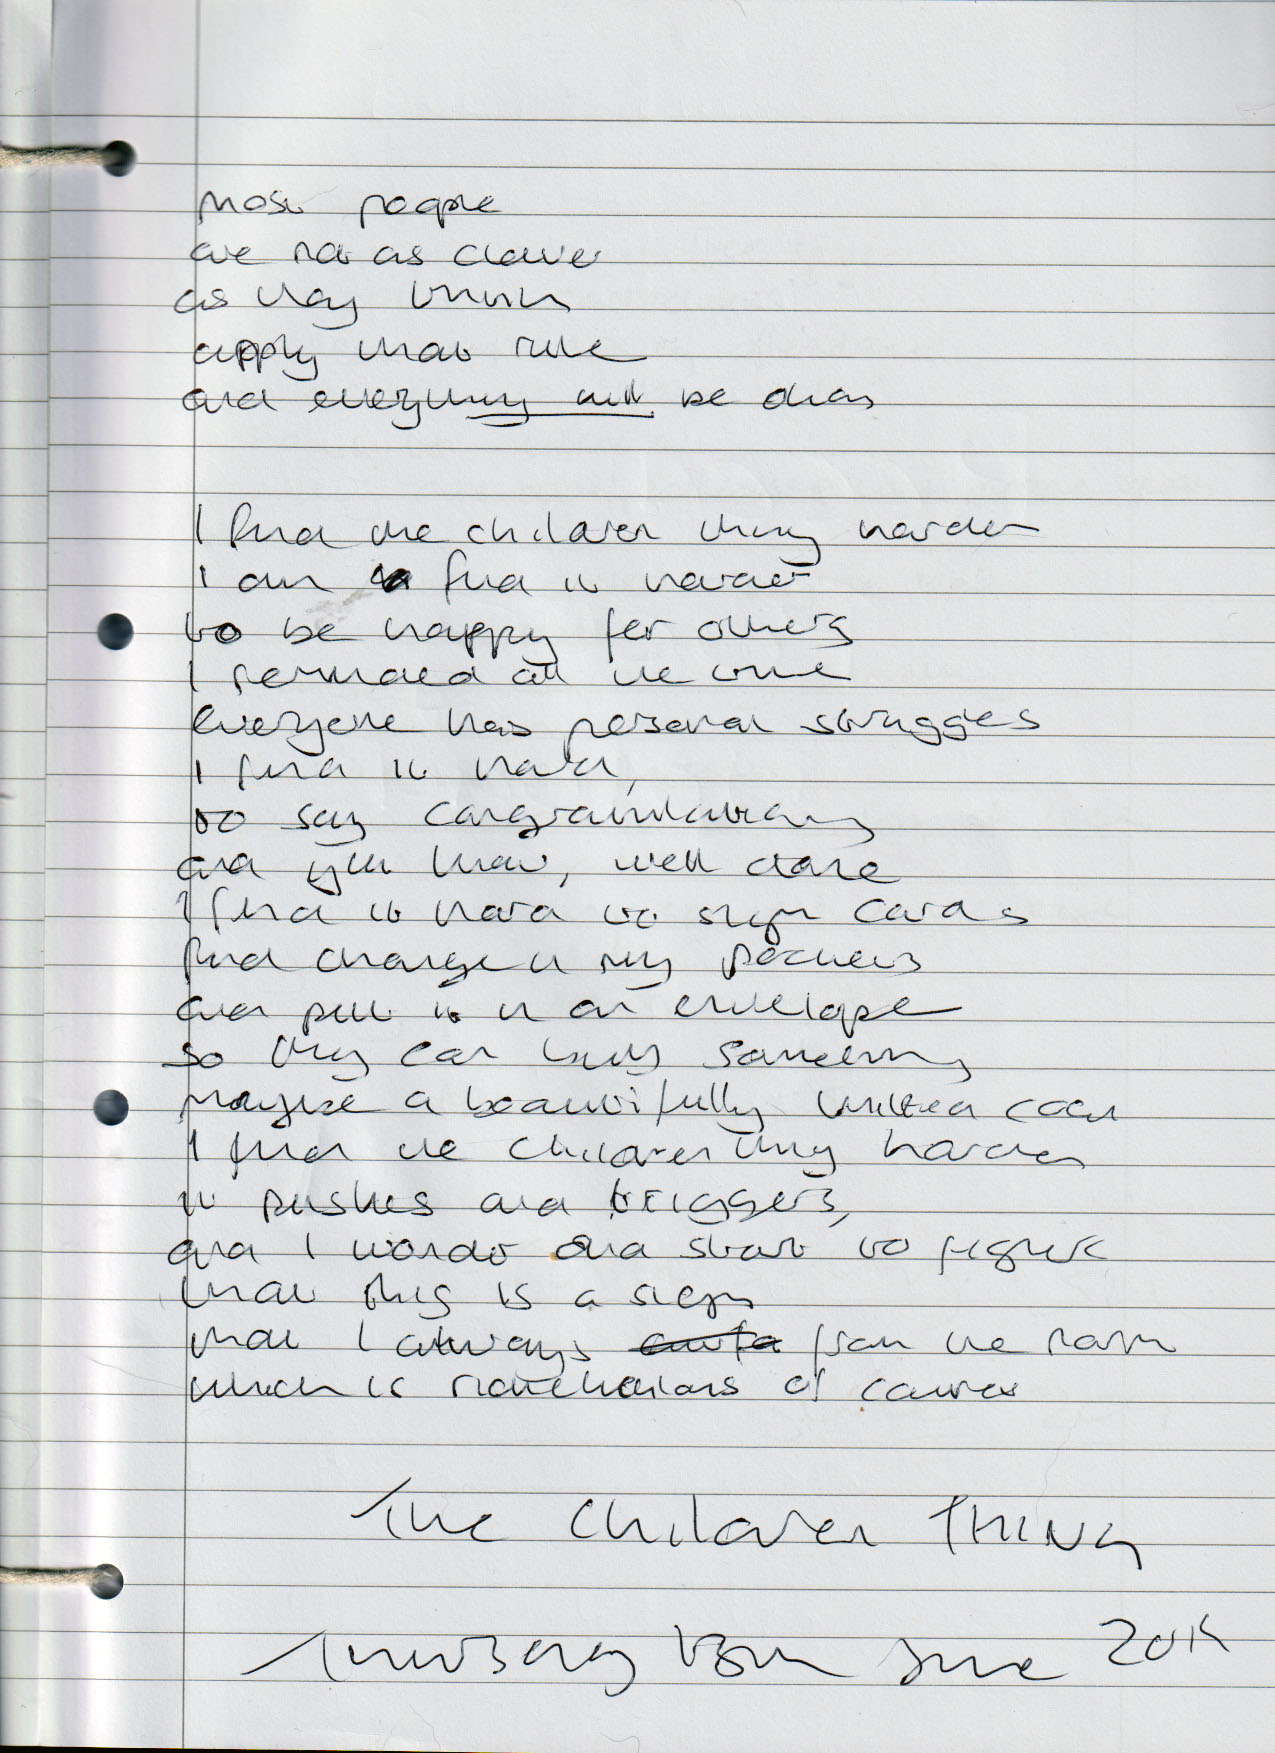 most people
are not as clever
as they think
apply that rule
and everything will be okay
I find the children thing harder
I am find it harder
to be happy for others
I reminded all the time
everyone has personal struggles
I find it hard,
to say congratulations
and you know, well done
I find it hard to sign cards
find change in my pockets
and put it in an envelope
so they can buy something
maybe a beautifully knitted coat
I find the children thing harder
it pushes and triggers,
and I wonder and start to figure
that this is a sign
that I always from the norm
which is of course
The Children THING
Thursday 13th June 2019